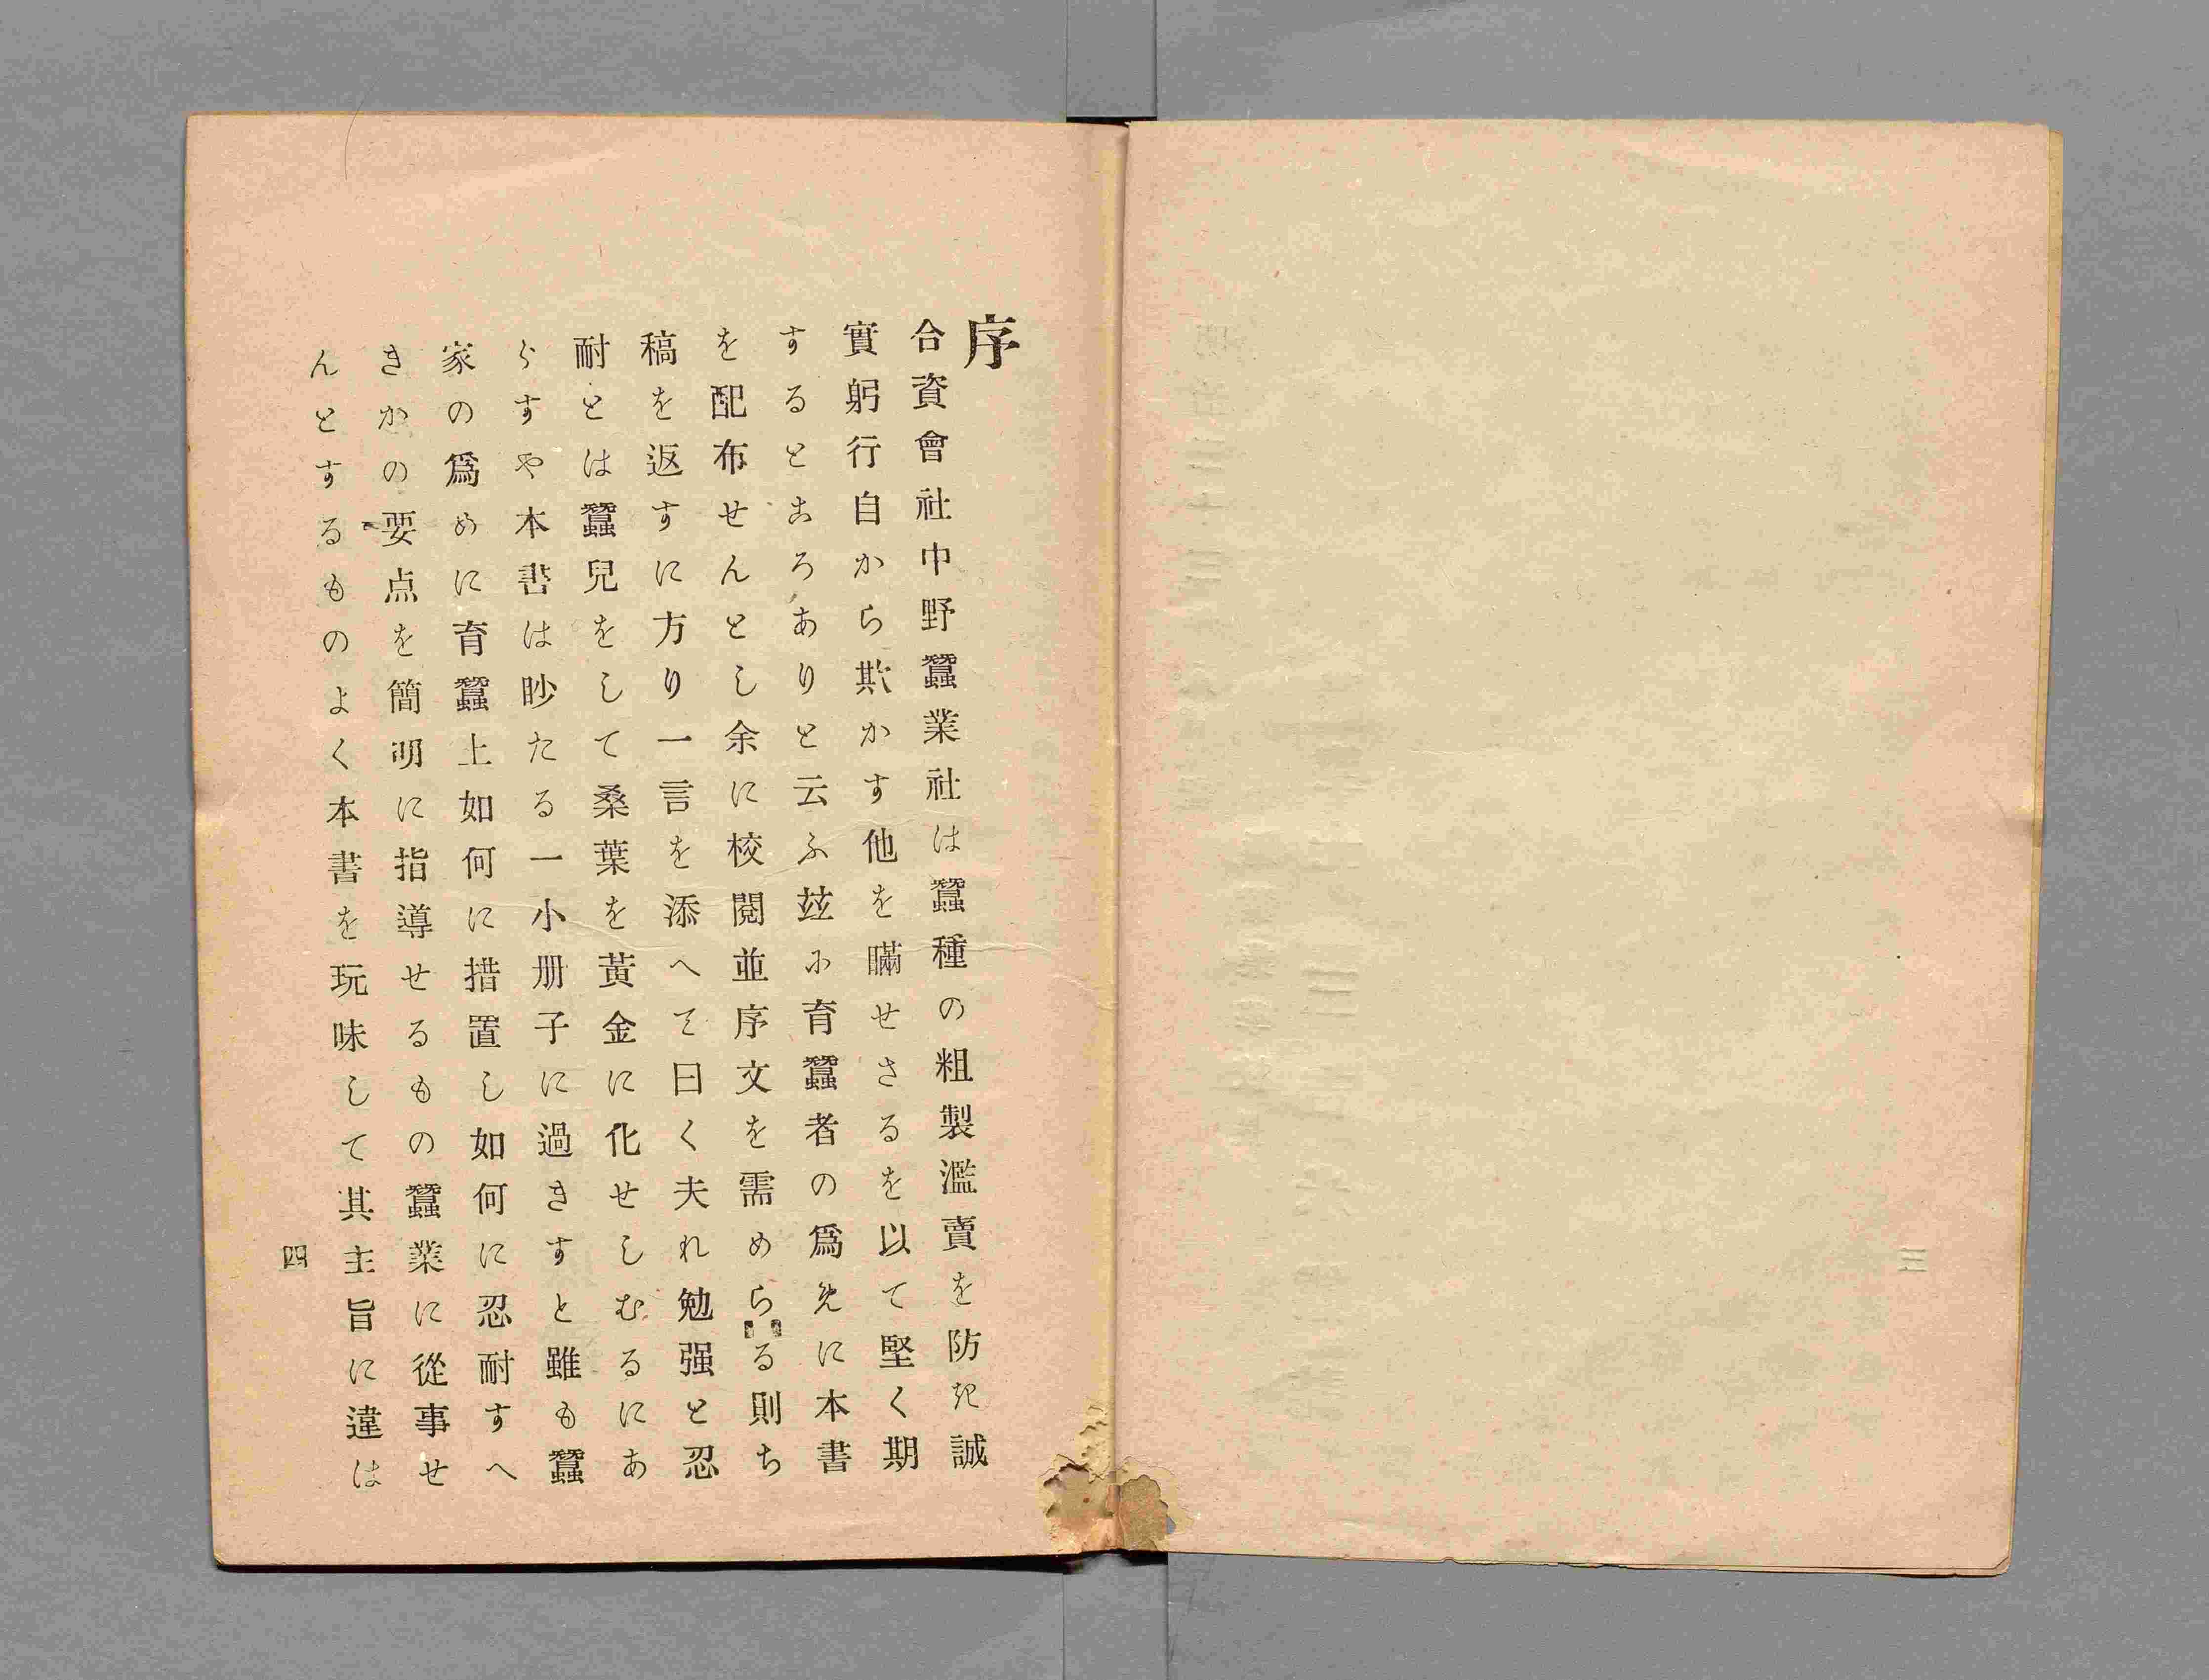 序
合資會社中野蠶業社は蠶種の粗製濫賣を防き誠
實躬行自から欺かす他を瞞せさるを以て堅く期
するところありと云ふ玆に育蠶者の爲めに本書
を配布せんとし余に校閱並序文を需めらる則ち
稿を返すに方り一言を添へて曰く夫れ勉强と忍
耐とは蠶兒をして桑葉を黃金に化せしむるにあ
らすや本書は眇たる一小册子に過きすと雖も蠶
家の爲めに育蠶上如何に措置し如何に忍耐すへ
きかの要点を簡明に指導せるもの蠶業に從事せ
んとするものよく本書を玩味して其主旨に違は
四